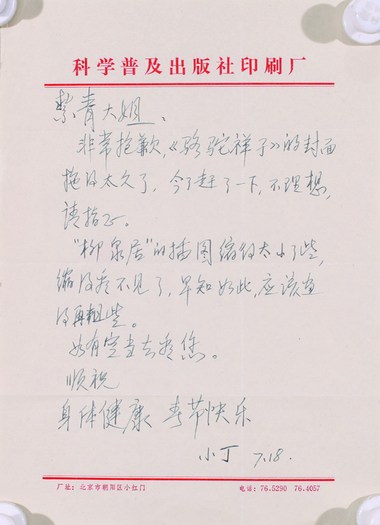 科学普及出版社印刷厂
絮青大姐：
非常抱歉，《骆驼祥子》的封面
拖得太久了，今了赶了一下，不理想，
请指正。
“柳泉居”的插图缩得太小了些，
缩得看不见了，早知如此，应该画
得再粗些。
如有空当去看您。
顺祝
身体健康 春节快乐
小丁 7.18.
厂址：北京市朝阳区小红门 电话：76.5290 76.4057